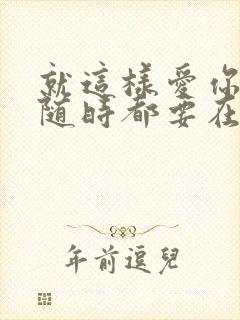 就這樣愛你
隨時都要在
年前逗兒